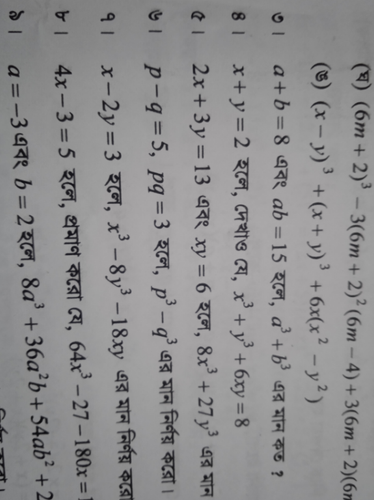 (ঘ) (6m + 2)³ − 3(6m + 2)² (6m − 4) + 3(6m + 2)(6m
(ঙ) (x − y)³ + (x + y)³ + 6x(x² − y²)
৩। a + b = 8 এবং ab = 15 হলে, a³ + b³ এর মান কত ?
৪। x + y = 2 হলে, দেখাও যে, x³ + y³ + 6xy = 8
৫। 2x + 3y = 13 এবং xy = 6 হলে, 8x³ + 27y³ এর মান
৬। p − q = 5, pq = 3 হলে, p³ − q³ এর মান নির্ণয় করো।
৭। x − 2y = 3 হলে, x³ − 8y³ − 18xy এর মান নির্ণয় করো
৮। 4x − 3 = 5 হলে, প্রমাণ করো যে, 64x³ − 27 − 180x = 1
৯। a = −3 এবং b = 2 হলে, 8a³ + 36a²b + 54ab² + 2